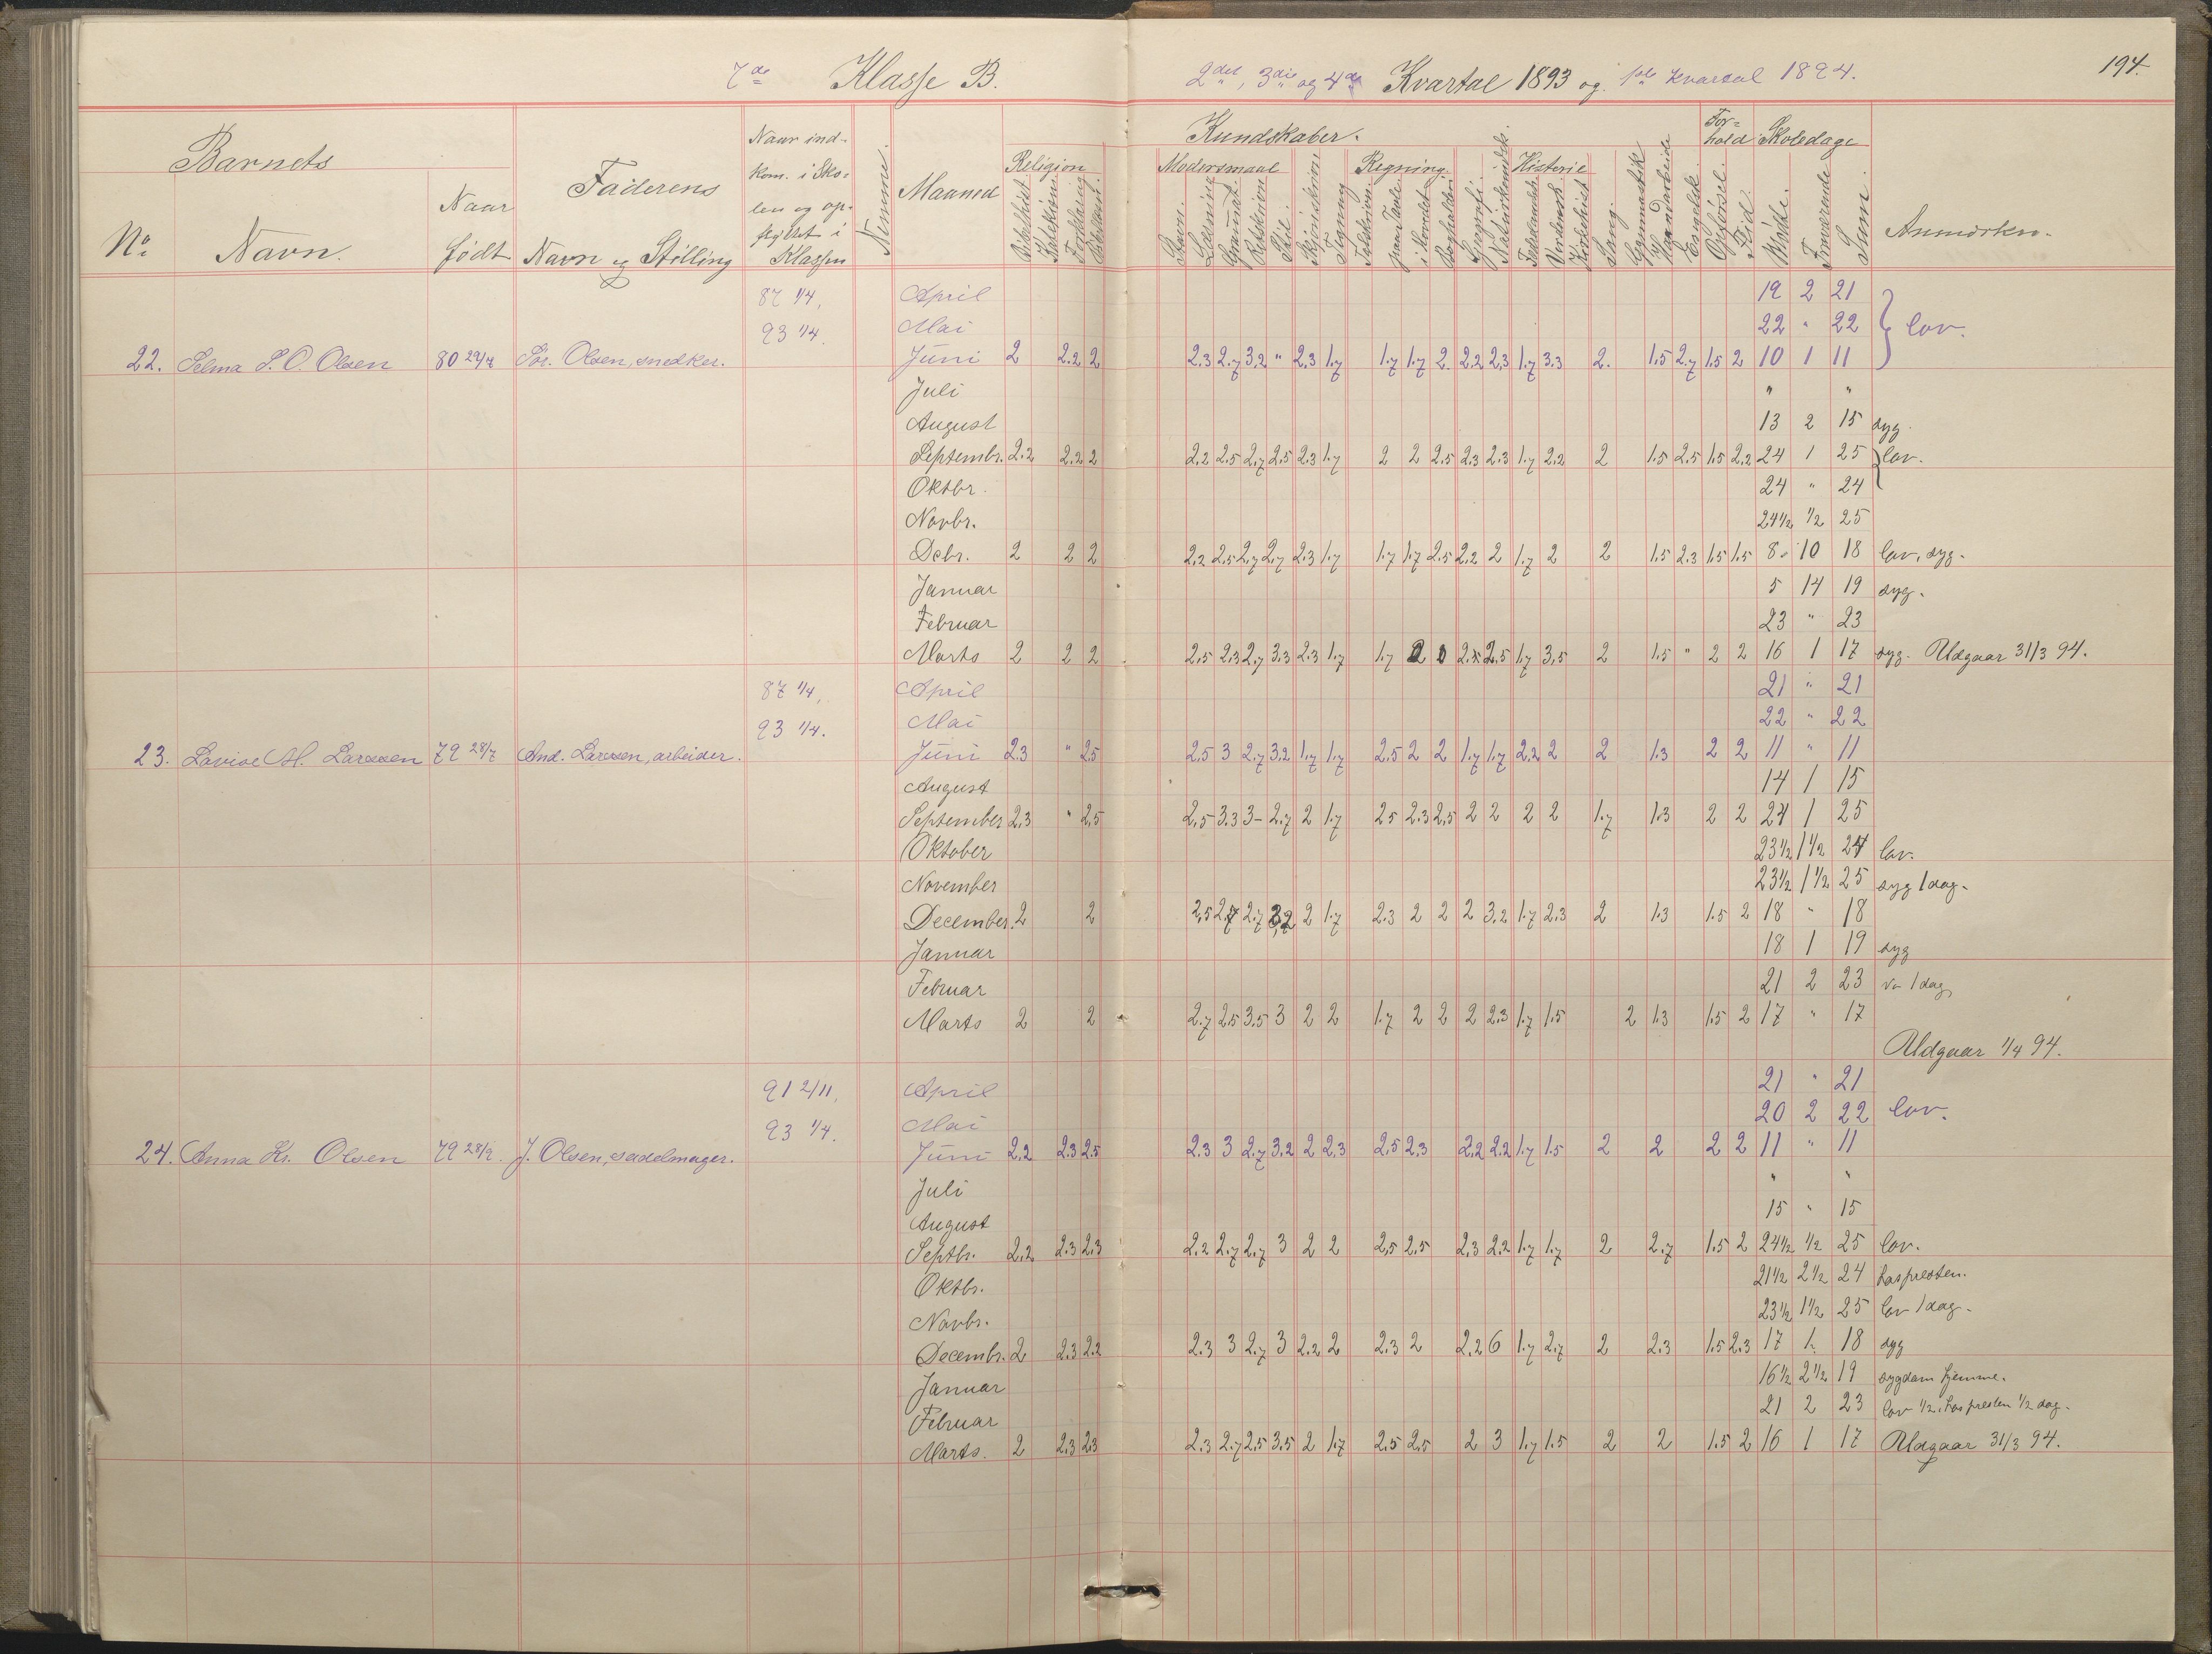 7de Klasse B.
2det, 3die og 4de Kvartal 1893 og 1ste Kvartal 1894.
194.
Barnets
Faderens
Naar ind-
kom. i Sko-
len og op-
flyttet i
Klassen
Nemme.
Maaned
Kundskaber.
For-
hold
Skoledage
Anmærkn.
No
Navn.
Naar
født
Navn og Stilling
Religion
Bibelhist.
Forklaring
Modersmaal
Læsning
Gramat.
Retskriv.
Stile.
Skjønskrivn.
Tegning
Regning.
paa Tavle
i Hovedet
Bogholderi
Geografi.
Naturkundsk.
Historie
Fædrelandsh.
Verdensh.
Kirkehist.
Sang.
Gymnastik
Haandarbeide
Engelsk.
Opførsel.
Flid.
Mødte.
Fraværende
Sum.
87 1/4, April 19 2 21
93 1/4. Mai 22 " 22 lov.
22. Selma S. O. Olsen 80 Sør. Olsen, snedker. Juni 2 2.2 2 2.3 2.7 3.2 " 2.3 1.7 1.7 1.7 2. 2.2 2.3 1.7 3.3 2. 1.5 2.7 1.5 2 10 1 11
Juli " "
August 13 2 15 syg.
Septembr. 2.2 2.2 2 2.2 2.5 2.7 2.5 2.3 1.7 2 2 2.5 2.3 2.3 1.7 2.2 2 1.5 2.5 1.5 2.2 24 1 25 lov.
Oktbr. 24 " 24
Novbr. 24 1/2 1/2 25
Debr. 2 2 2 2.2 2.5 2.7 2.7 2.3 1.7 1.7 1.7 2.5 2.2 2 1.7 2 2 1.5 2.3 1.5 1.5 8 10 18 lov, syg.
Januar 5 14 19 syg.
Februar 23 " 23
Marts 2 2 2 2.5 2.3 2.7 3.3 2.3 1.7 1.7 2 2.5 1.7 3.5 2 1.5 " 2 2 16 1 17 syg. Udgaar 31/3 94.
87 1/4, April 21 " 21
93 1/4. Mai 22 " 22
23. Lovise M. Larssen 79 28/7 And. Larssen, arbeider. Juni 2.3 " 2.5 2.5 3 2.7 3.2 1.7 1.7 2.5 2 2 1.7 1.7 2.2 2 2 1.3 2 2 11 " 11
August 14 1 15
September 2.3 " 2.5 2.5 3.3 3- 2.7 2 1.7 2.5 2.3 2.5 2 2 2 2 1.7 1.3 2 2 24 1 25
Oktober 23 1/2 1 1/2 24 lov.
November 23 1/2 1 1/2 25 syg 1 dag.
December 2 2 2.5 2.7 2.7 3.2 2 1.7 2.3 2 2 2 3.2 1.7 2.3 2 1.3 1.5 2 18 " 18
Januar 18 1 19 syg
Februar 21 2 23 1 dag
Marts 2 2 2.7 2.5 3.5 3 2 2 1.7 2 2 2 2.3 1.7 1.5 2 1.3 1.5 2 17 " 17
Udgaar 1/4 94.
91 2/11, April 21 " 21
93 1/4. Mai 20 2 22 lov.
24. Anna Kr. Olsen 79 28/9. J. Olsen, sadelmager. Juni 2.2 2.3 2.5 2.3 3 2.7 3.2 2 2.3 2.5 2.3 2.2 2.2 1.7 1.5 2 2 2 2 11 " 11
Juli " "
August 15 " 15
Septbr. 2.2 2.3 2.3 2.2 2.7 2.7 3 2 2 2.5 2.5 2.3 2.2 1.7 1.7 2 2.7 1.5 2 24 1/2 1/2 25 lov.
Oktbr. 21 1/2 2 1/2 24 hos presten.
Novbr. 23 1/2 1 1/2 25 lov 1 dag.
Decembr. 2 2.3 2.2 2.3 3 2.7 3 2.2 2 2.3 2 2.2 6 1.7 2.7 2 2.3 1.5 2.3 17 1 18 syg
Januar 16 1/2 2 1/2 19 sygdom hjemme.
Februar 21 2 23 lov 1/2, hos presten 1/2 dag.
Marts. 2 2.3 2.3 2.3 2.7 2.5 3.5 2 1.7 2.5 2.5 2 3 1.7 1.5 2 2 1.5 2 16 1 17 Udgaar 31/3 94.